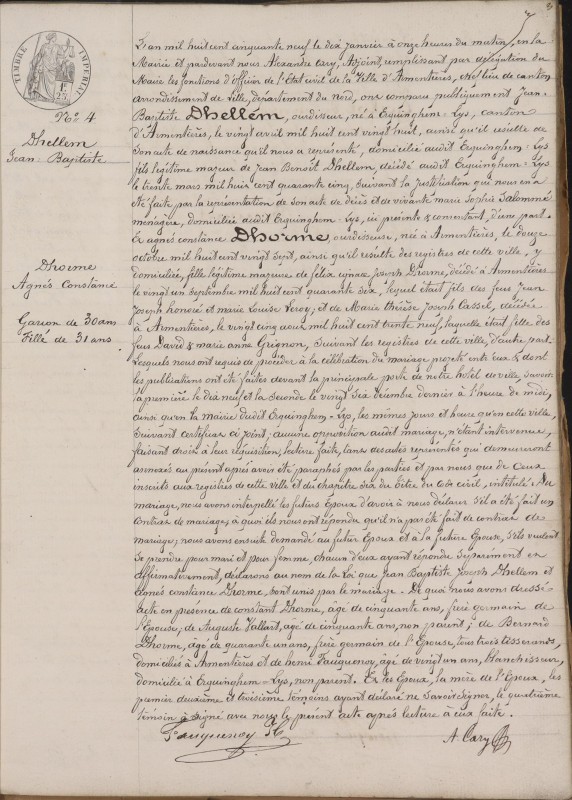 7
TIMBRE IMPERIAL
1F
25
N.° 4
Dhellem
Jean-Baptiste
Dhorme
Agnès Constance
Garçon de 30 ans
Fille de 31 ans.
L'an mil huit cent cinquante neuf le dix janvier à onze heures du matin, en la
Mairie et pardevant nous Alexandre Cary, Adjoint, remplissant par délégation du
Maire les fonctions d'officier de l'Etat civil de la Ville d'Armentières, chef lieu de canton
arrondissement de Lille, département du Nord, ont comparu publiquement Jean-
Baptiste Dhellem, ourdisseur, né à Erquinghem-Lys, canton
d'Armentières, le vingt avril mil huit cent vingt huit, ainsi qu'il résulte de
son acte de naissance qu'il nous a représenté, domicilié audit Erquinghem-Lys
fils légitime majeur de Jean Benoît Dhellem, décédé audit Erquinghem-Lys
le trente mars mil huit cent quarante cinq, suivant la justification qui nous en a
été faite par la représentation de son acte de décès et de vivante marie Sophie Salomé
ménagère, domiciliée audit Erquinghem-Lys, ici présente & consentant, d'une part
Et agnès constance Dhorme, ourdisseuse, née à Armentières, le douze
octobre mil huit cent vingt sept, ainsi qu'il résulte des registres de cette ville, y
domiciliée, fille légitime majeure de félix ignace Joseph Dhorme, décédé à Armentières
le vingt un septembre mil huit cent quarante six, lequel était fils des feus Jean
Joseph honoré et marie Louise Leroy; et de Marie Thérèse Joseph Cassel, décédée
à Armentières, le vingt cinq aout mil huit cent trente neuf, laquelle était fille des
feus David & marie anne Grignon, suivant les registres de cette ville, d'autre part
Lesquels nous ont requis de procéder à la célébration du mariage projeté entr'eux & dont
les publications ont été faites devant la principale porte de notre hotel de ville, savoir
la première le dix neuf et la seconde le vingt six décembre dernier à l'heure de midi,
ainsi qu'en la mairie dudit Erquinghem-Lys, les mêmes jours et heure qu'en cette ville,
suivant certificat ci joint; aucune opposition audit mariage, n'étant intervenue,
faisant droit à leur réquisition, lecture faite, tant des actes représentés qui demeureront
annexés au présent après avoir été paraphés par les parties et par nous que de Ceux
inscrits aux registres de cette ville et du chapitre six du titre du Code civil, intitulé: Du
mariage, nous avons interpellé les futurs Epoux d'avoir à nous déclarer s'il a été fait un
contrat de mariage, à quoi ils nous ont répondu qu'il n'a pas été fait de contrat de
mariage; nous avons ensuite demandé au futur Epoux et à la future Epouse, s'ils veulent
se prendre pour mari et pour femme, chacun d'eux ayant répondu séparément et
affirmativement, déclarons au nom de la Loi que Jean Baptiste Joseph Dhellem et
agnès constance Dhorme, sont unis par le mariage. De quoi nous avons dressé
acte en présence de constant Dhorme, âgé de cinquante ans, frère germain de
l'Epouse; de Auguste Vallart, âgé de cinquante ans, non parent; de Bernard
Dhorme, âgé de quarante un ans, frère germain de l'Epouse, tous trois tisserands,
domiciliés à Armentières et de henri Fauquenoy, âgé de vingt un ans, blanchisseur,
domicilié à Erquinghem-Lys, non parent. Et les Epoux, la mère de l'Epoux, les
premier deuxième et troisième témoins ayant déclaré ne savoir signer, le quatrième
témoin a signé avec nous le présent acte après lecture à eux faite.
Fauquenoy H
A. Cary